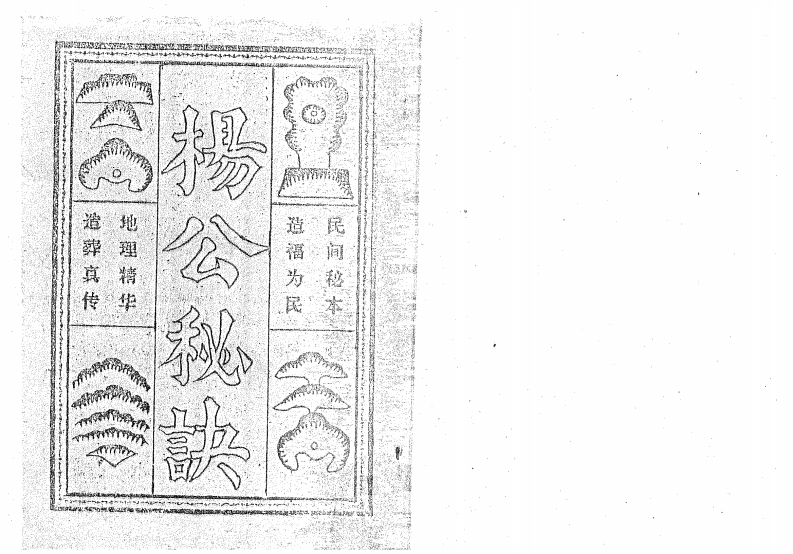 民间秘本
造福为民
楊公秘訣
地理精华
造葬真传